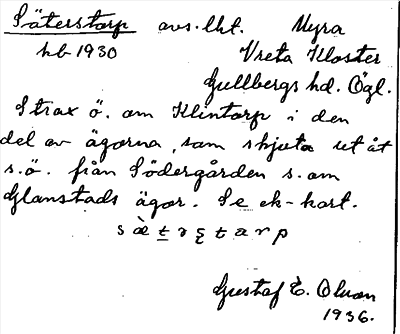 Säterstorp avs. lht. Myra
hb 1930 Vreta Kloster
Gullbergs hd. Ögl.
Strax ö. om Klintorp i den
del av ägorna, som skjuta ut åt
s.ö. från Södergården s. om
Glanstads ägor. Se ek-kart.
Gustaf E. Olson
1936.